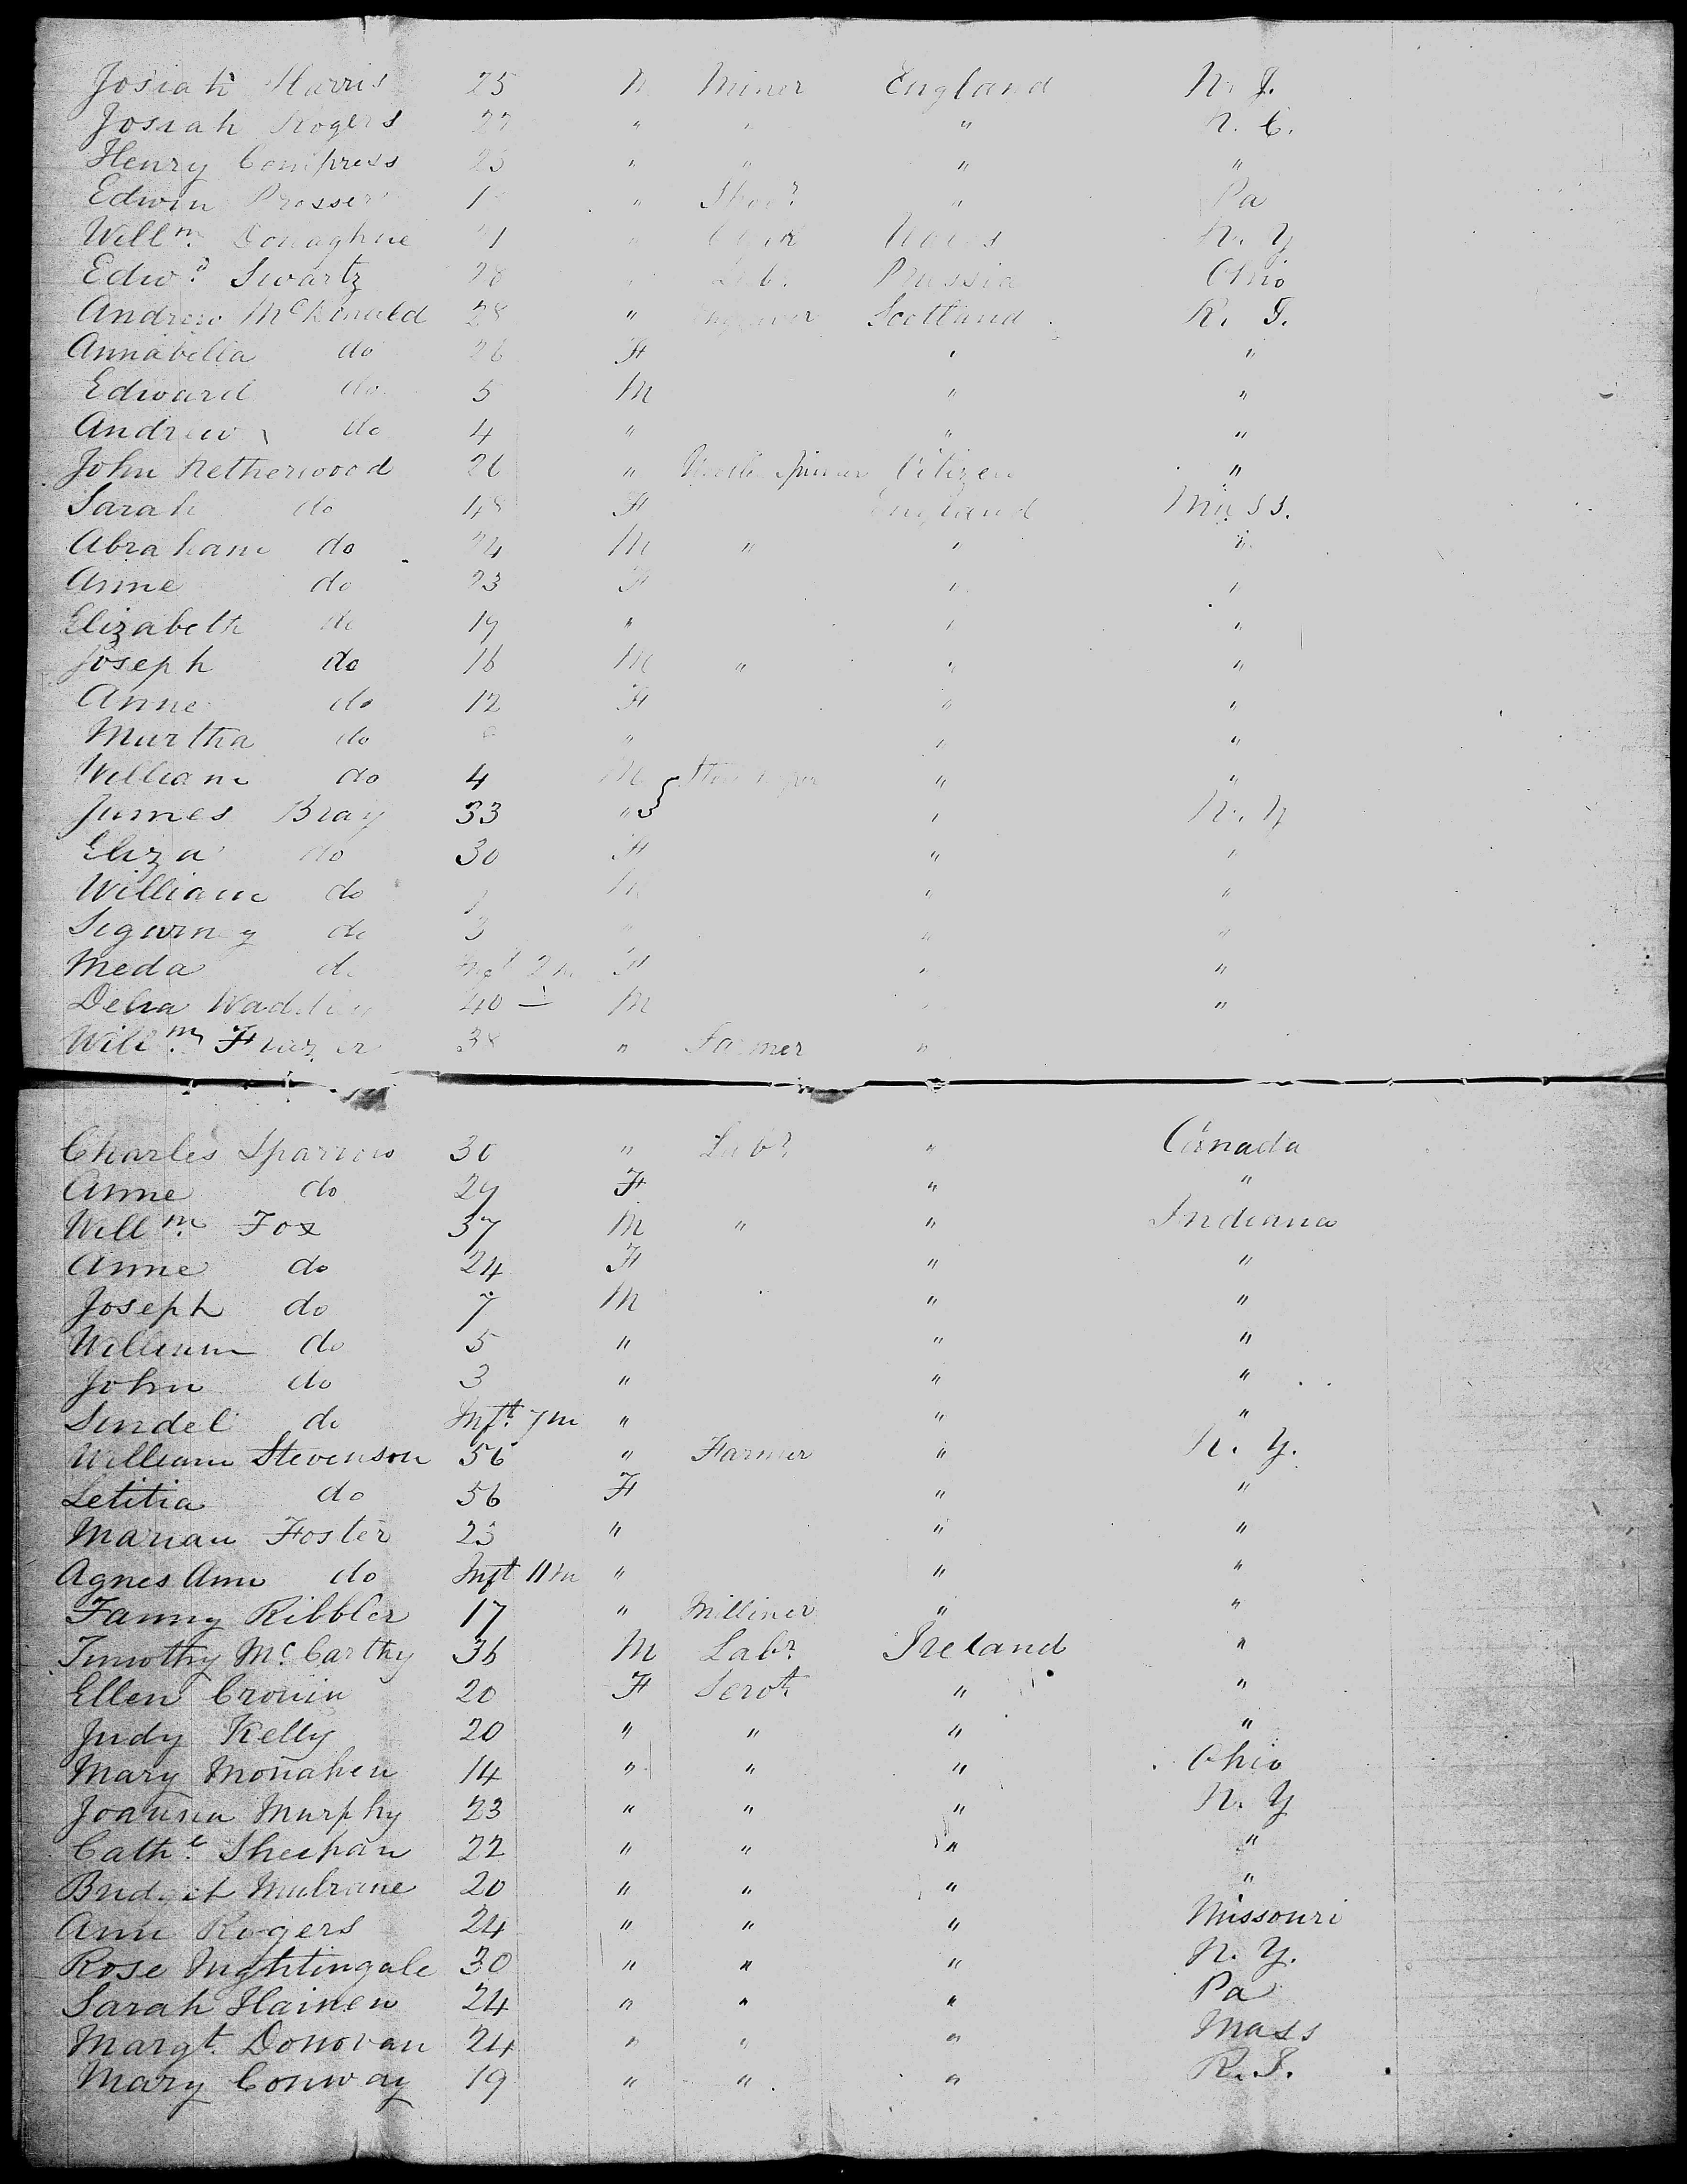 Josiah Harris 25 M Miner England N. J.
Josiah Rogers 27 " " " N. C.
Henry Compress 25 " " " "
Edwin Prosser " " Pa
Will^m. Donaghue N. Y
Edw^d. Swartz 28 Lab. Prussia Ohio
Andrew McKinald 28 " Scotland R. I.
Annabella do 26 F " "
Edward do 5 M " "
Andrew do 4 " " "
John Netherwood 26 " Spinner Citizen "
Sarah do 48 F England Mass.
Abraham do 24 M " " "
Anne do 23 F " "
Elizabeth do 19 " " "
Joseph do 16 M " " "
Anne do 12 F " "
Martha do " " "
William do 4 M " "
James Bray 33 " " N. Y
Eliza do 30 F " "
William do M " "
Sigurney do 3 " " "
Meda do Inft 2 m F " "
Delia 40 M "
Will^m. Frazer 38 " Farmer "
Charles Sparrow 30 " Lab^r. " Canada
Anne do 29 F " "
Will^m. Fox 37 M " " Indiana
Anne do 24 F " "
Joseph do 7 M " "
William do 5 " " "
John do 3 " " "
Sindel do Inft. 7m " " "
William Stevenson 56 " Farmer " N. Y.
Letitia do 56 F " "
Marian Foster 23 " " "
Agnes Ann do Inft 11m " " "
Fanny Ribbler 17 " Milliner " "
Timothy McCarthy 36 M Lab^r. Ireland "
Ellen Cronin 20 F Servt. " "
Judy Kelly 20 " " " "
Mary Monahen 14 " " " Ohio
Joanna Murphy 23 " " " N. Y
Cath^e. Sheehan 22 " " " "
Bridget Mulrane 20 " " " "
Ann Rogers 24 " " " Missouri
Rose Nightingale 30 " " " N. Y.
Sarah Hainen 24 " " " Pa
Margt. Donovan 24 " " " Mass
Mary Conway 19 " " " R. I.